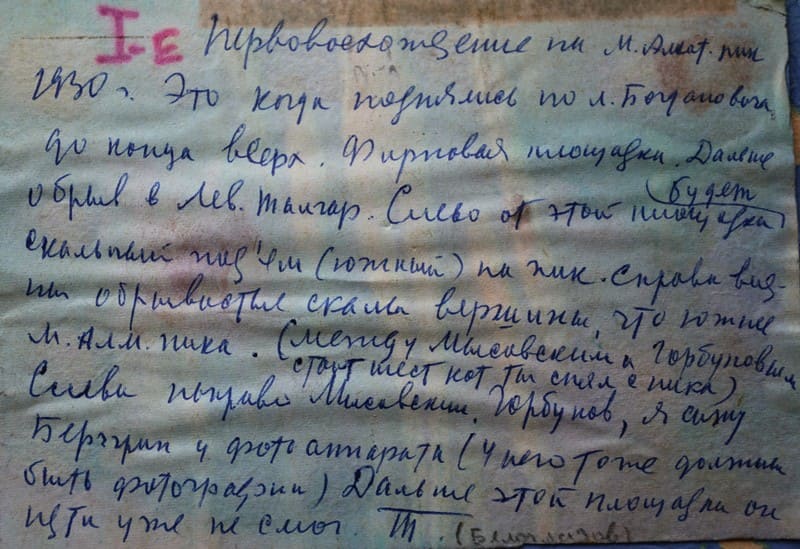 I-е Первовосхождение на М. Алмат. пик
1930 г. Это когда поднялись по л. Богдановича
до конца вверх. Фирновая площадка. Дальше
обрыв в Лев. Талгар. Слево от этой площадки (будет
скальный под'ем (южный) на пик. Справа вид-
ны обрывистые скалы вершины, что южнее
М. Алм. пика. (между Мысовским и Горбуновым
стоит шест кот ты снял с пика)
Слева направо Мысовский, Горбунов, я сижу
Бергрин у фотоаппарата (у него тоже должны
быть фотографии) Дальше этой площадки он
идти уже не смог. Т. (Белоглазов)